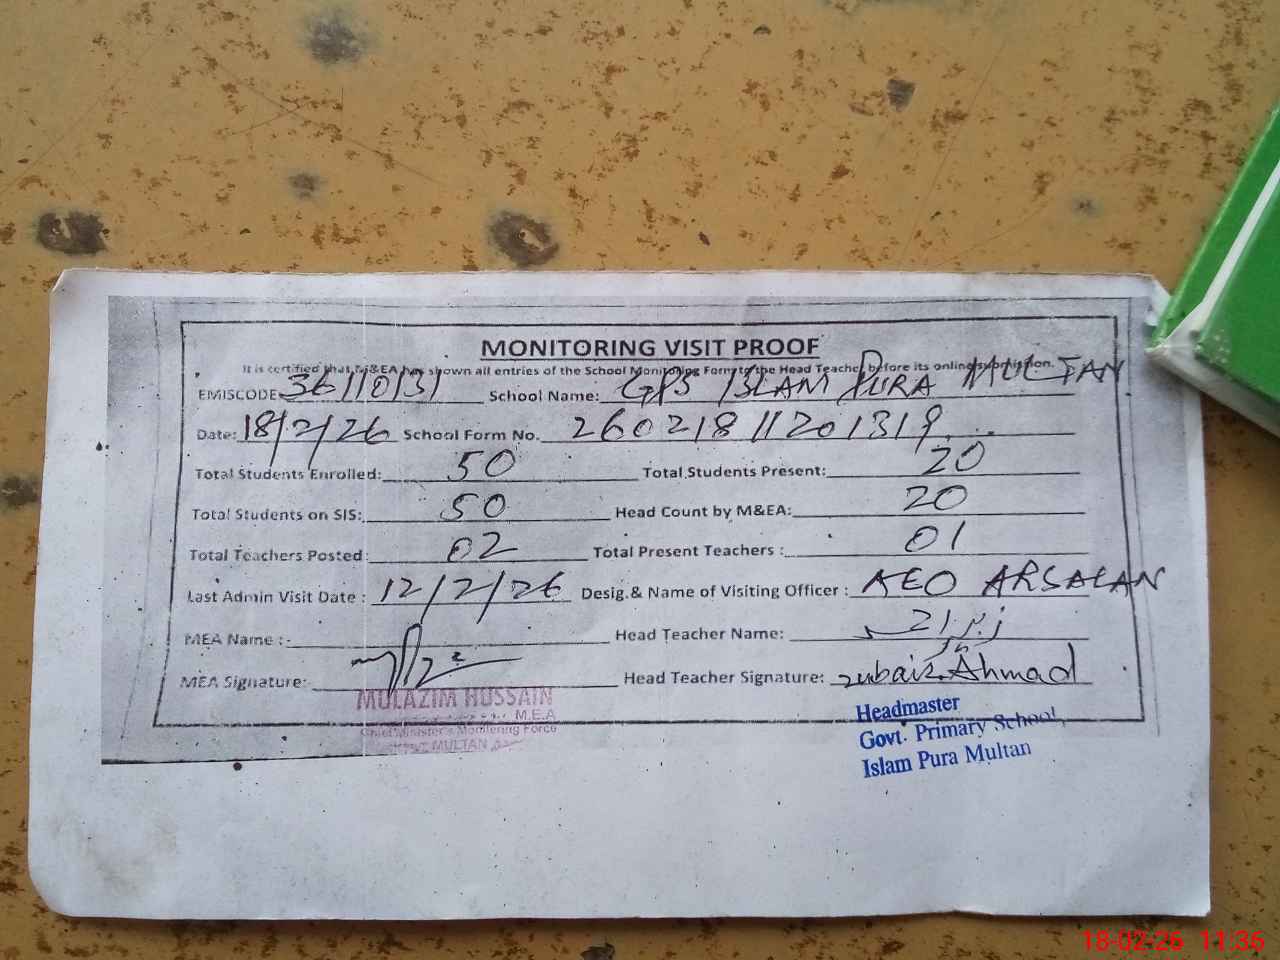 MONITORING VISIT PROOF
It is certified that M&EA has shown all entries of the School Monitoring Form to the Head Teacher before its online submission.
EMISCODE 36110131 School Name: GPS ISLAM PURA MULTAN
Date: 18/2/26 School Form No. 26021811201319
Total Students Enrolled: 50 Total Students Present: 20
Total Students on SIS: 50 Head Count by M&EA: 20
Total Teachers Posted: 02 Total Present Teachers : 01
Last Admin Visit Date : 12/2/26 Desig.& Name of Visiting Officer : AEO ARSALAN
MEA Name :- Head Teacher Name:
MEA Signature: Head Teacher Signature: Zubair Ahmad
MULAZIM HUSSAIN
M.E.A
Chief Minister's Monitoring Force
MULTAN
Headmaster
Govt. Primary School,
Islam Pura Multan
18-02-26 11:36